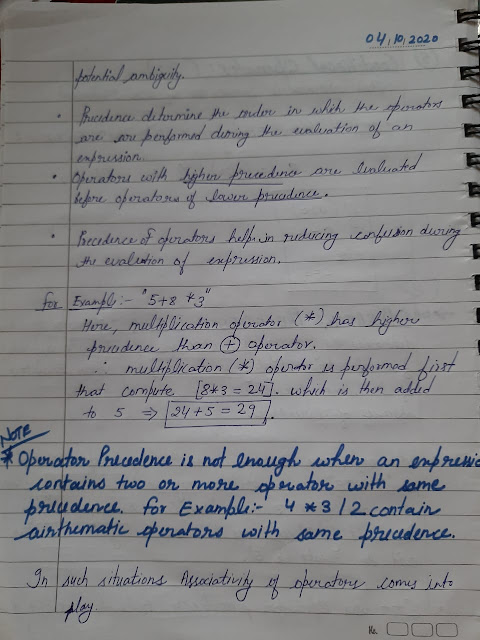 04,10,2020
potential ambiguity.
• Precedence determine the order in which the operators
are are performed during the evaluation of an
expression.
• Operators with higher precedence are Evaluated
before operators of lower precedence.
• Precedence of operators helps in reducing confusion during
the evaluation of expression.
for Example:- "5+8 *3"
Here, multiplication operator (*) has higher
precedence than (+) operator.
∴ multiplication (*) operator is performed first
that compute [8*3 = 24]. which is then added
to 5 ⇒ [24+5 = 29].
NOTE
* Operator Precedence is not enough when an expressio
contains two or more operator with same
precedence. for Example:- 4 * 3 / 2 contain
airthematic operators with same precedence.
In such situations Associativity of operators comes into
play.